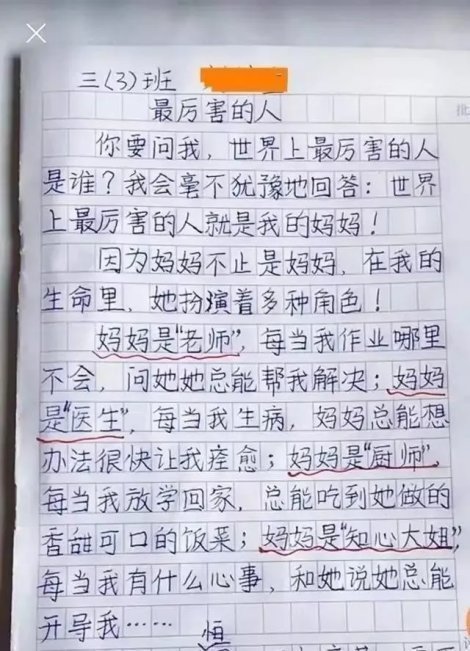 三(3)班
最厉害的人
你要问我，世界上最厉害的人
是谁？我会毫不犹豫地回答：世界
上最厉害的人就是我的妈妈！
因为妈妈不止是妈妈，在我的
生命里，她扮演着多种角色！
妈妈是“老师”，每当我作业哪里
不会，问她她总能帮我解决；妈妈
是“医生”，每当我生病，妈妈总能想
办法很快让我痊愈；妈妈是“厨师”，
每当我放学回家，总能吃到她做的
香甜可口的饭菜；妈妈是“知心大姐”，
每当我有什么心事，和她说她总能
开导我……
恒